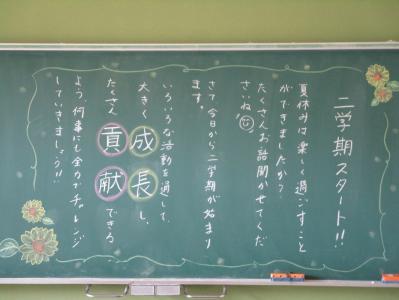 二学期スタート!!
夏休みは楽しく過ごすこと
ができましたか?
たくさんお話聞かせてくだ
さいね
さて今日から二学期が始まり
ます。
いろいろな活動を通して、
大きく成長し、
たくさん貢献できる
よう、何事にも全力でチャレンジ
していきましょう!!